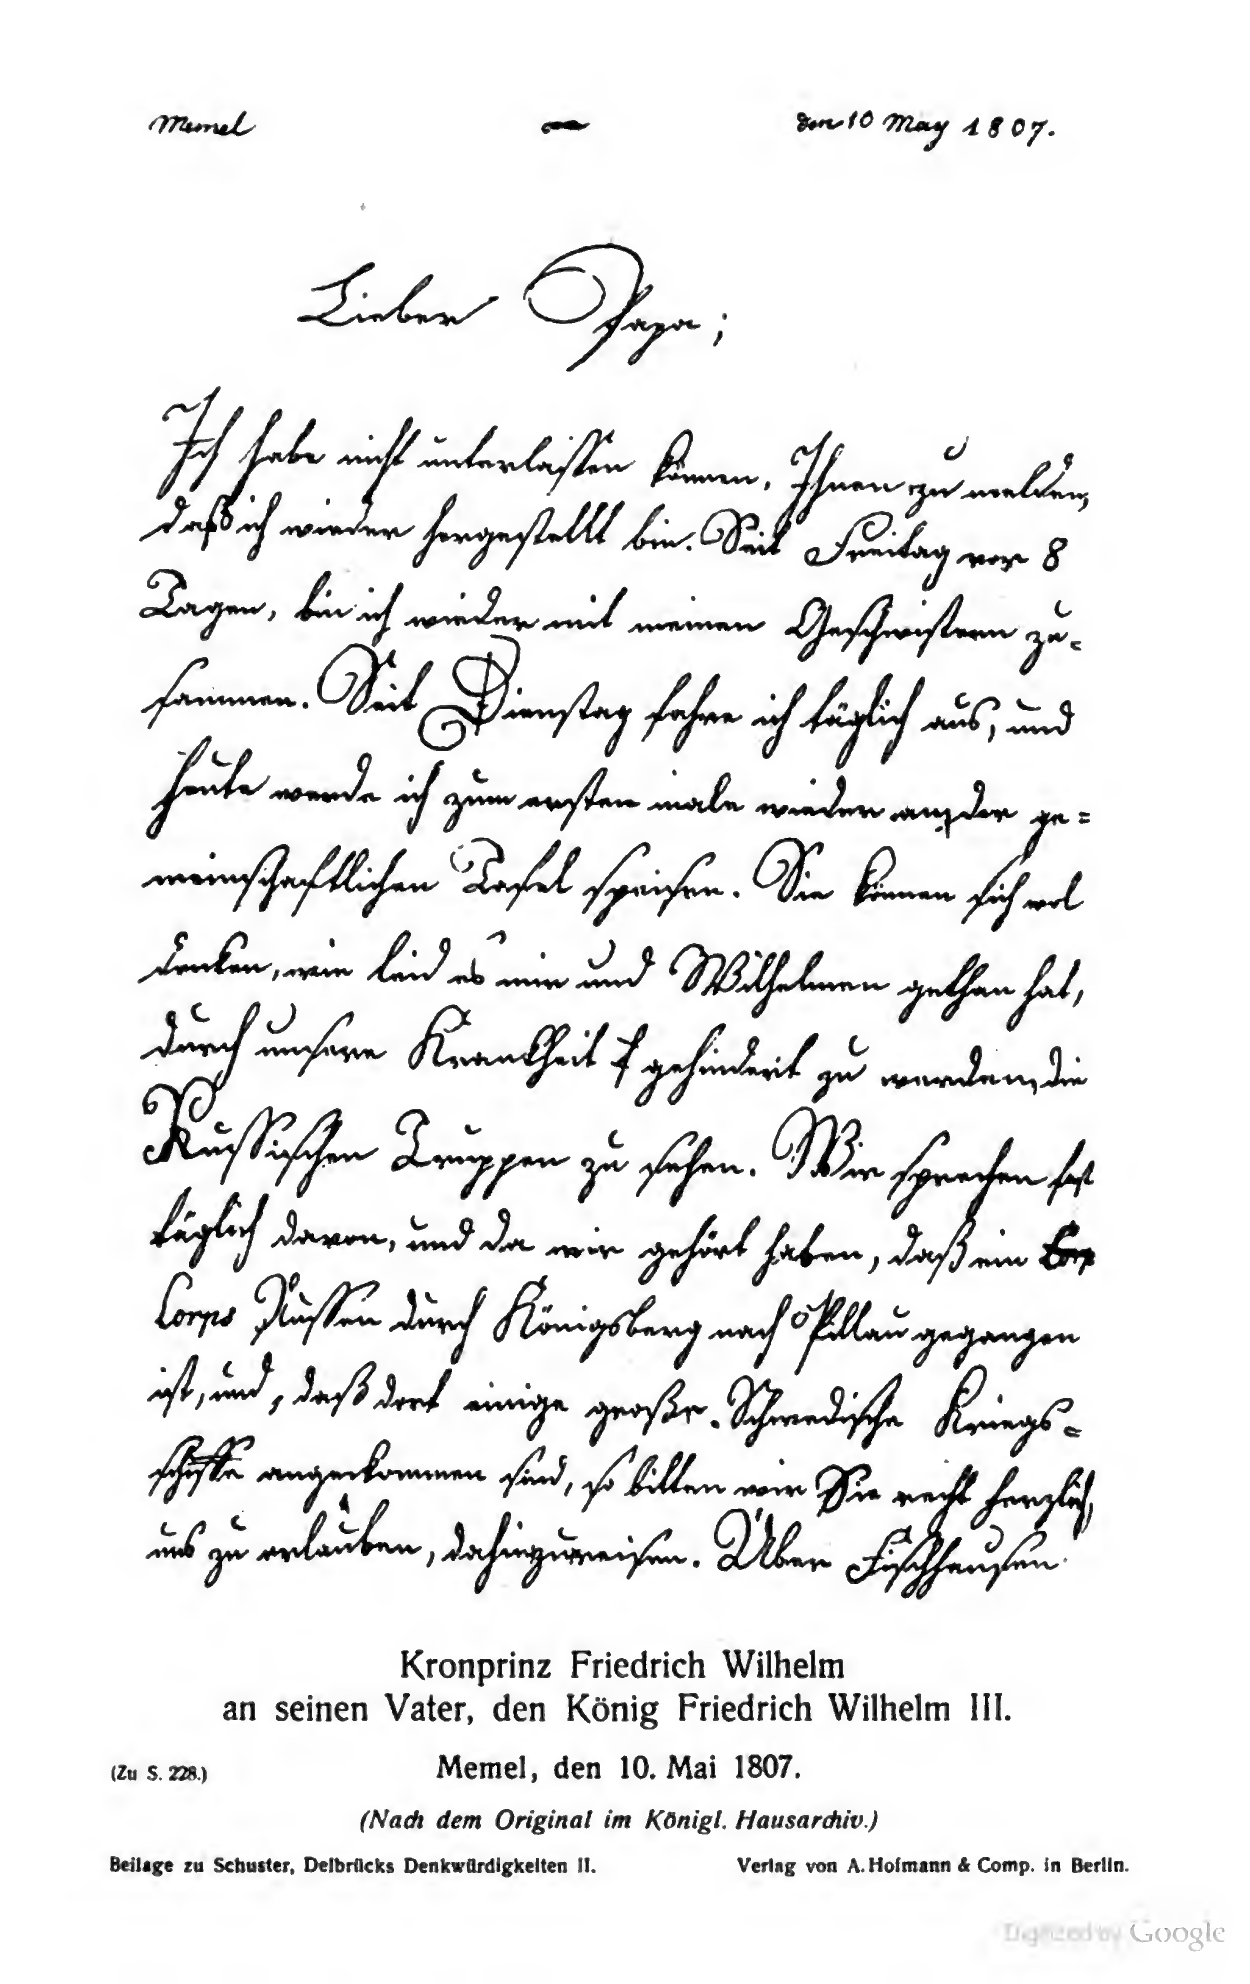 Memel – den 10 May 1807.
Lieber Papa;
Ich habe nicht unterlassen können, Ihnen zu melden,
daß ich wieder hergestellt bin. Seit Freitag vor 8
Tagen, bin ich wieder mit meinen Geschwistern zu-
sammen. Seit Dienstag fahre ich täglich aus, und
heute werde ich zum ersten male wieder an der ge=
meinschaftlichen Tafel speisen. Sie können sich wol
denken, wie leid es mir und Wilhelmen gethan hat,
durch unsere Krankheit gehindert zu werden, die
Russischen Truppen zu sehen. Wir sprechen fast
täglich davon, und da wir gehört haben, daß ein
Corps Russen durch Königsberg nach Pillau gegangen
ist, und, daß dort einige große Schwedische Kriegs=
schiffe angekommen sind, so bitten wir Sie recht herzlich,
uns zu erlauben, dahinzureisen. Über Fischhausen
Kronprinz Friedrich Wilhelm
an seinen Vater, den König Friedrich Wilhelm III.
(Zu S. 228.) Memel, den 10. Mai 1807.
(Nach dem Original im Königl. Hausarchiv.)
Beilage zu Schuster, Delbrücks Denkwürdigkeiten II. Verlag von A. Hofmann & Comp. in Berlin.
Digitized by Google